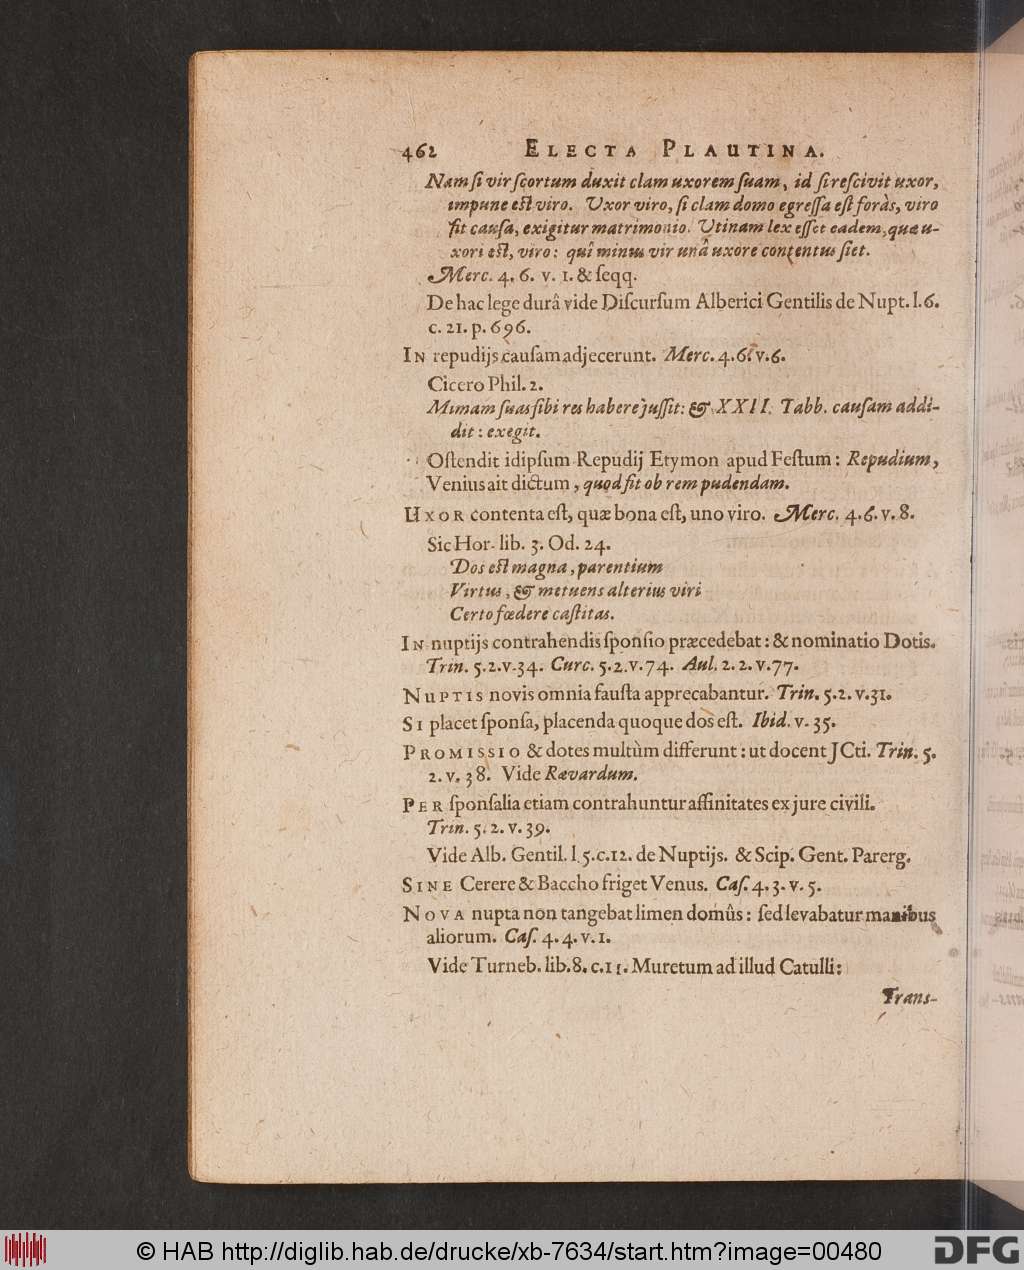 462 ELECTA PLAUTINA.
Nam ſi vir ſcortum duxit clam uxorem ſuam, id ſi reſcivit uxor,
impune eſt viro. Uxor viro, ſi clam domo egreſſa eſt foràs, viro
fit cauſa, exigitur matrimonio. Utinam lex eſſet eadem, quæ u-
xori eſt, viro: quî minus vir unâ uxore contentus ſiet.
Merc. 4. 6. v. 1. & ſeqq.
De hac lege durâ vide Diſcurſum Alberici Gentilis de Nupt. l. 6.
c. 21. p. 696.
IN repudijs cauſam adjecerunt. Merc. 4. 6. v. 6.
Cicero Phil. 2.
Mimam ſuas ſibi res habere juſſit: & XXII. Tabb. cauſam addi-
dit: exegit.
Oſtendit idipſum Repudij Etymon apud Feſtum: Repudium,
Venius ait dictum, quod fit ob rem pudendam.
UXOR contenta eſt, quæ bona eſt, uno viro. Merc. 4. 6. v. 8.
Sic Hor. lib. 3. Od. 24.
Dos eſt magna, parentium
Virtus, & metuens alterius viri
Certo fœdere caſtitas.
IN nuptijs contrahendis ſponſio præcedebat: & nominatio Dotis.
Trin. 5. 2. v. 34. Curc. 5. 2. v. 74. Aul. 2. 2. v. 77.
NUPTIS novis omnia fauſta apprecabantur. Trin. 5. 2. v. 31.
SI placet ſponſa, placenda quoque dos eſt. Ibid. v. 35.
PROMISSIO & dotes multùm differunt: ut docent JCti. Trin. 5.
2. v. 38. Vide Rævardum.
PER ſponſalia etiam contrahuntur affinitates ex jure civili.
Trin. 5. 2. v. 39.
Vide Alb. Gentil. l 5. c. 12. de Nuptijs. & Scip. Gent. Parerg.
SINE Cerere & Baccho friget Venus. Caſ. 4. 3. v. 5.
NOVA nupta non tangebat limen domûs: ſed levabatur manibus
aliorum. Caſ. 4. 4. v. 1.
Vide Turneb. lib. 8. c. 11. Muretum ad illud Catulli:
Trans-
© HAB http://diglib.hab.de/drucke/xb-7634/start.htm?image=00480
DFG